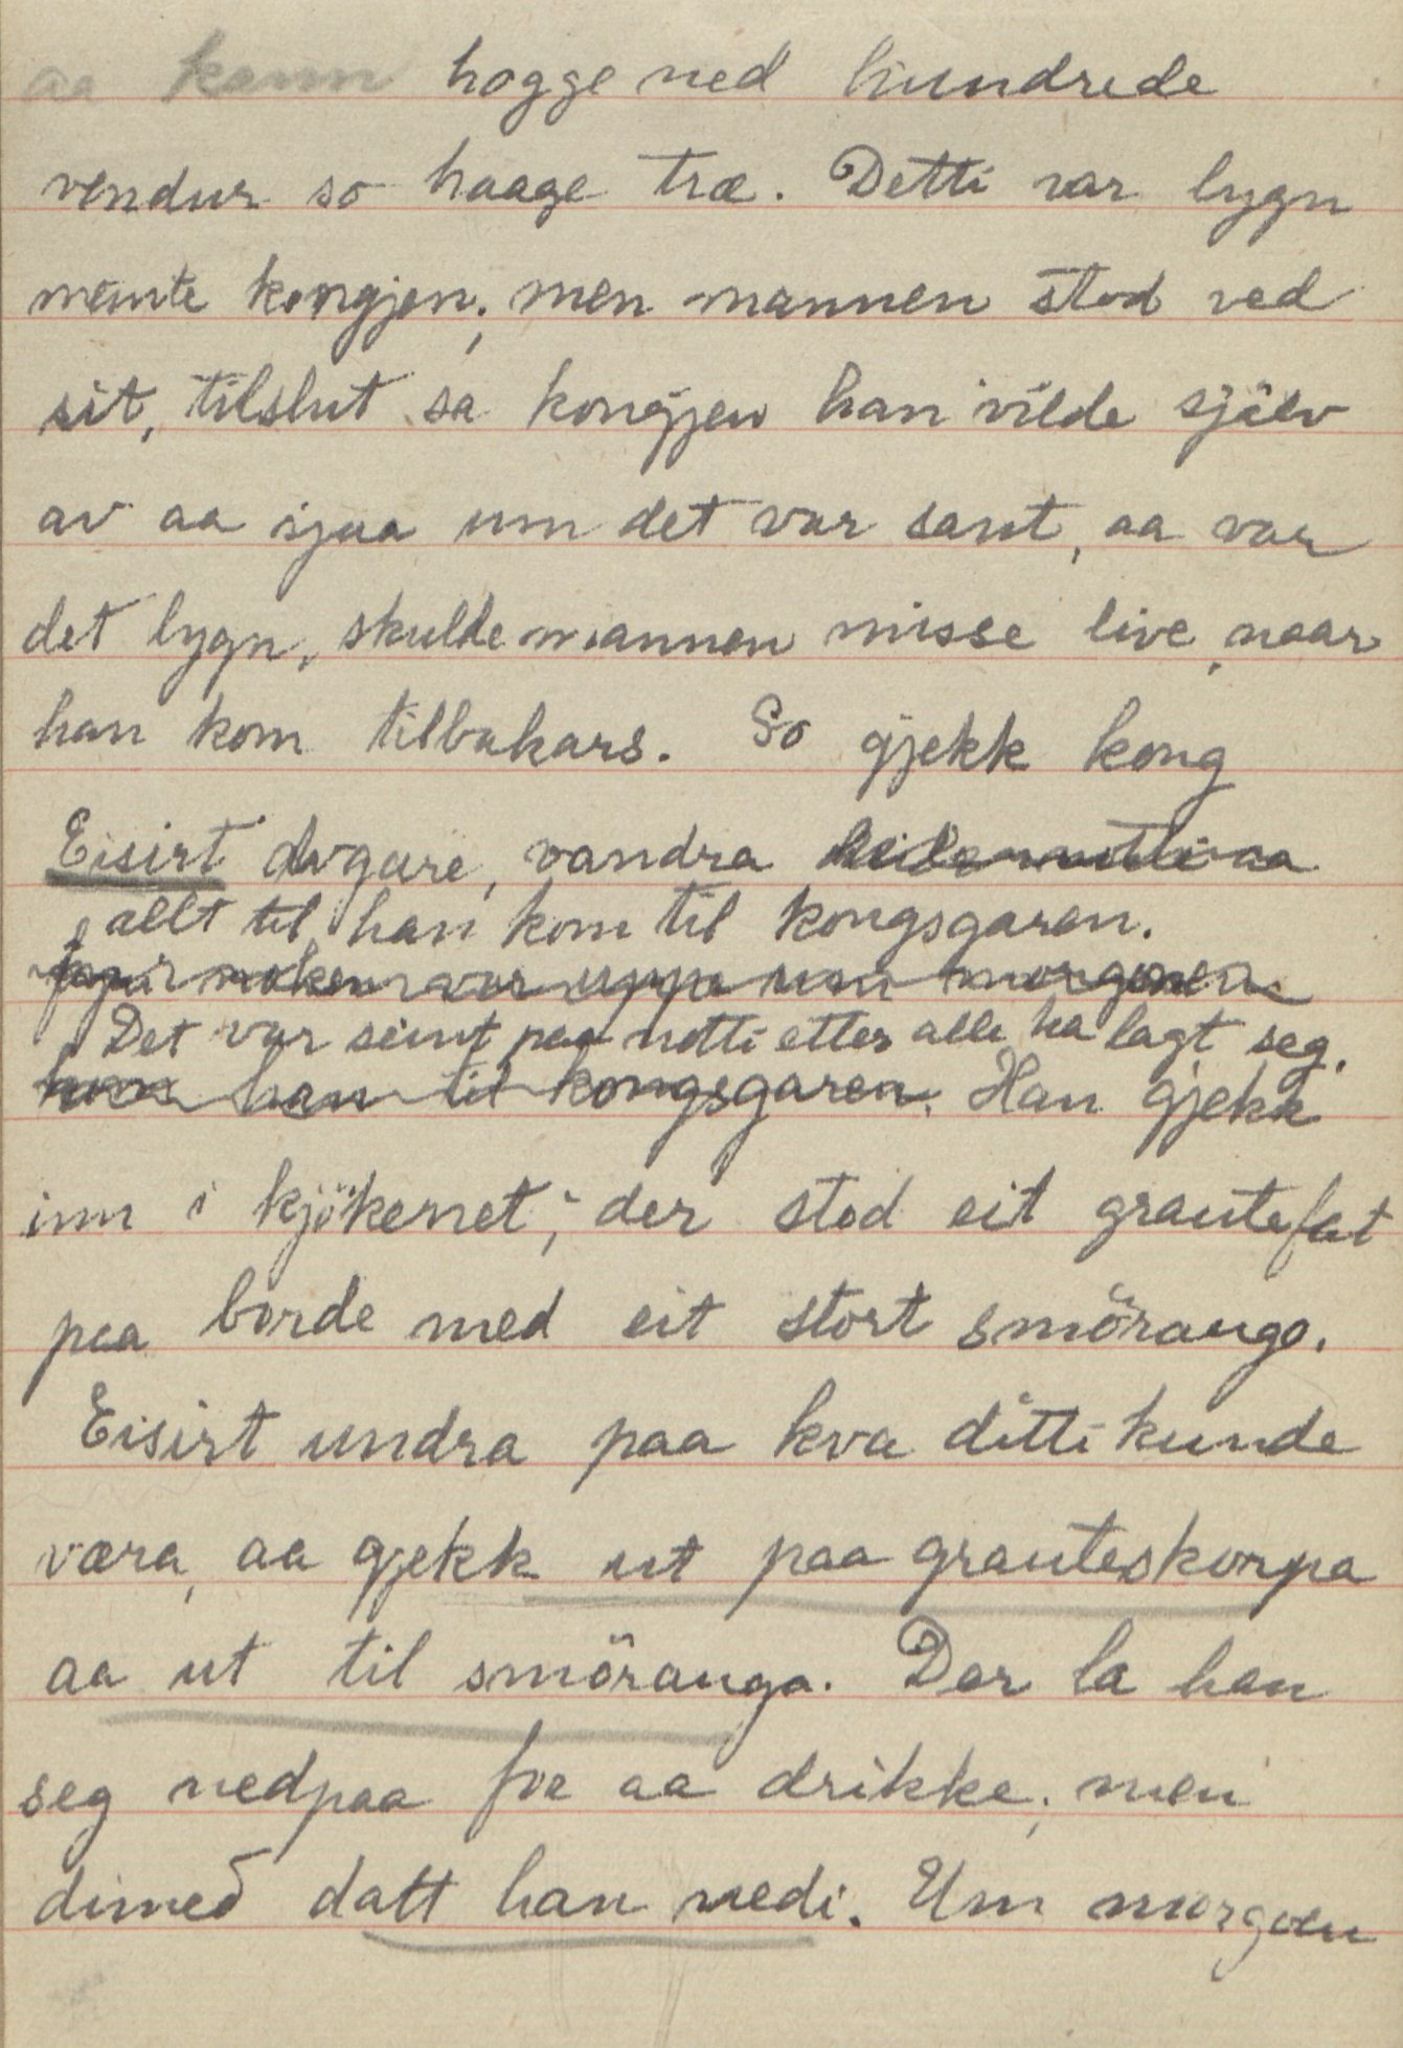 aa kann hogge ned hundrede
vendur so haage træ. Detti var lygn
meinte kongjen; men mannen stod ved
sit, tilslut sa kongjen han vilde sjölv
av aa sjaa um det var sant, aa var
det lygn, skulde mannen misse live, naar
han kom tilbakars. So gjekk kong
Eisirt dvgare, vandra heile notti aa
allt til han kom til kongsgaren.
var uppe um morgonen
Det var seint paa notti etter alle ha lagt seg.
kom han til kongsgaren. Han gjekk
inn i kjökenet; der stod eit grautefat
paa borde med eit stort smörauga.
Eisirt undra paa kva ditti kunde
væra, aa gjekk ut paa grauteskorpa
aa ut til smörauga. Der la han
seg nedpaa for aa drikke; men
dimed datt han nedi. Um morgoen